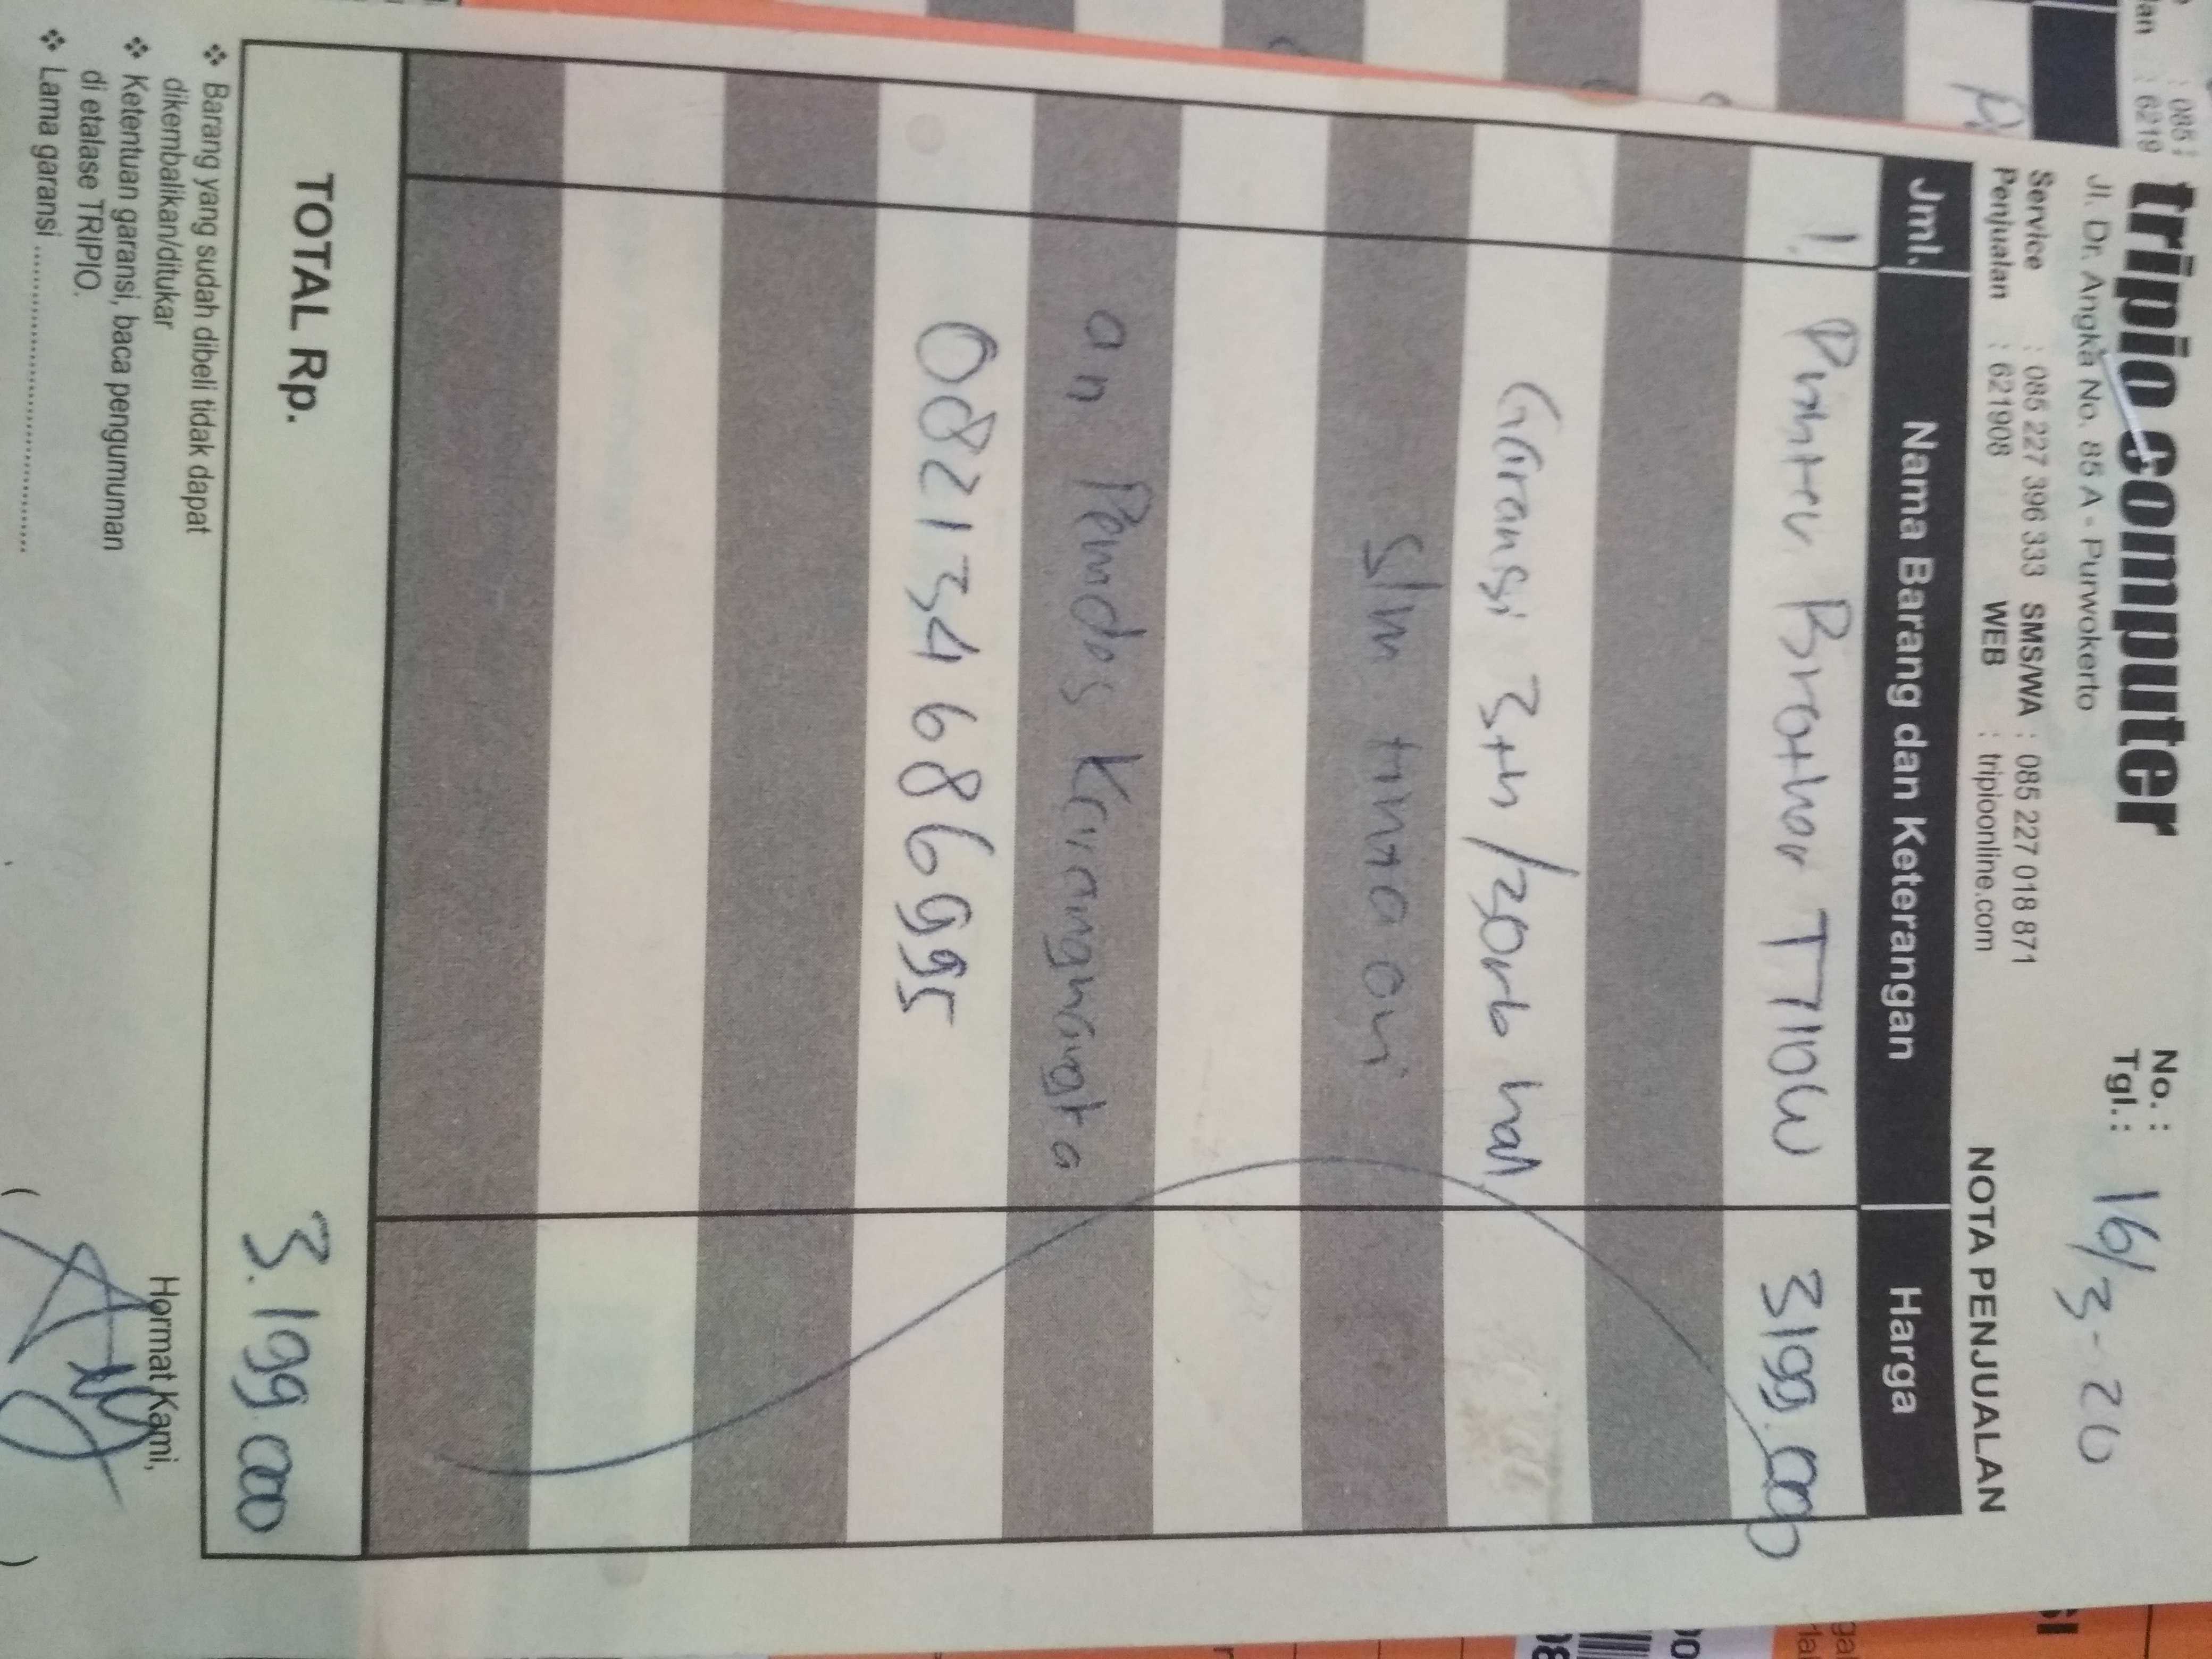 tripio computer
No. :
Tgl. : 16/3-20
Jl. Dr. Angka No. 85 A - Purwokerto
Service : 085 227 396 333 SMS/WA : 085 227 018 871
Penjualan : 621908 WEB : tripioonline.com
NOTA PENJUALAN
Jml. Nama Barang dan Keterangan Harga
1. Printer Brother T710W 3199.000
Garansi 3th /30rb hal
an Pemdes Kranggan
082134686995
TOTAL Rp. 3.199.000
❖ Barang yang sudah dibeli tidak dapat
dikembalikan/ditukar
❖ Ketentuan garansi, baca pengumuman
di etalase TRIPIO.
❖ Lama garansi ........................................
Hormat Kami,
( )